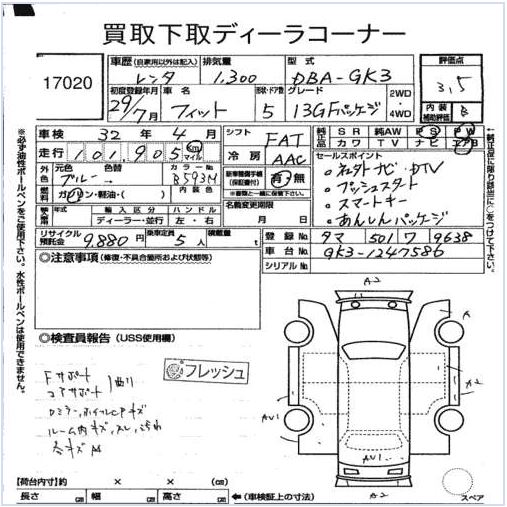 買取下取ディーラコーナー
17020
車歴 (自家用以外は記入) レンタ
排気量 1,300
型式 DBA-GK3
評価点 3,5
初度登録年月 29/7月
車名 フィット
ドア数 5
グレード 13GFパッケージ
2WD・4WD
内装補助評価 B
車検 32年 4月
シフト FAT
純正品 SR 純AW PS PW
カワ TV ナビ エアB
走行 101,905 km マイル
冷房 AAC
セールスポイント
外色 元色 ブルー 色替
カラーNo. B593M
新車整備手帳(保証書付) 有・無
・インターナビ・DTV
・プッシュスタート
・スマートキー
・あんしんパッケージ
燃料 ガソリン・軽油・( )
内装色
※書類と一緒に保管して下さい。
年式
輸入区分 ディーラー・並行
ハンドル 左・右
名義変更期限 月 日
リサイクル預託金 9,880円
乗車定員 5人
積載量 t
登録No. タマ 501 ワ 9638
車台No. GK3-1247586
シリアルNo.
◎注意事項 (修復・不具合箇所および状態等)
◎検査員報告 (USS使用欄)
フレッシュ
Fサポート
コアサポート 曲り
ルーム内キズ
各キズ
A-2
A
A-2
AU1
AU1
A
A-2
【荷台内寸】約 × × (cm)
長さ cm 幅 cm 高さ cm ←(車検証上の寸法)
スペア
※必ず油性ボールペンをご使用下さい。水性ボールペンは使用できません。